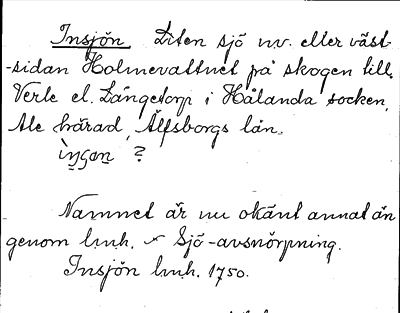 Insjön Liten sjö nv. eller väst-
-sidan Holmevattnet på skogen till
Verle el. Långetorp i Hålanda socken,
Ale härad, Älfsborgs län.
ìŋʃøn ?
Namnet är nu okänt annat än
genom l.m.h. Sjö-avsnörpning.
Insjön l.m.h. 1750.